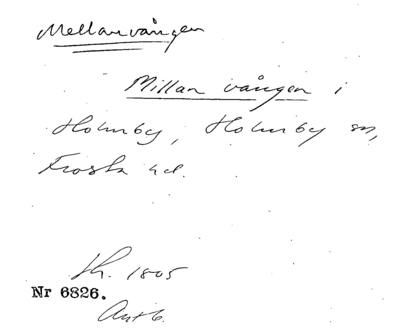 Mellanvången
Millan vången i
Holmby, Holmby sn,
Frosta hd.
Sk. 1805
Nr 6826.